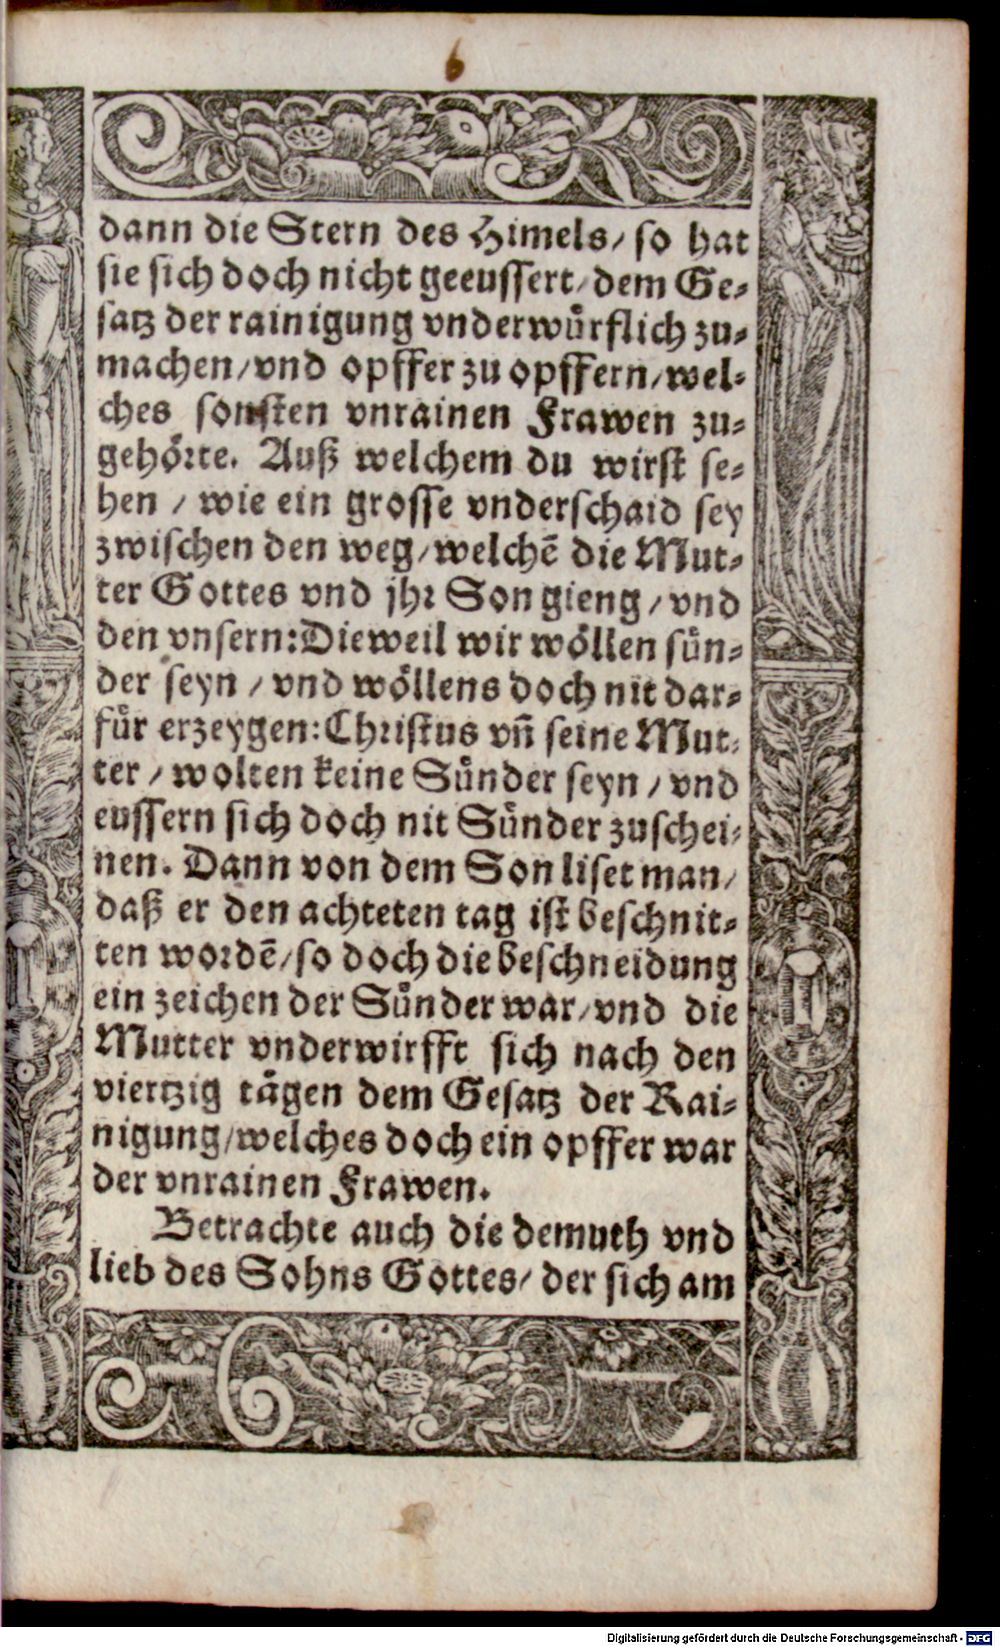 6
dann die Stern des Himels/ so hat
sie sich doch nicht geeussert/ dem Ge⸗
satz der rainigung vnderwuͤrflich zu⸗
machen/ vnd opffer zu opffern/ wel⸗
ches sonsten vnrainen Frawen zu⸗
gehoͤrte. Auß welchem du wirst se⸗
hen / wie ein grosse vnderschaid sey
zwischen den weg/ welchē die Mut⸗
ter Gottes vnd jhr Son gieng / vnd
den vnsern: Dieweil wir woͤllen suͤn⸗
der seyn / vnd woͤllens doch nit dar⸗
fuͤr erzeygen: Christus vñ seine Mut⸗
ter / wolten keine Suͤnder seyn / vnd
eussern sich doch nit Suͤnder zuschei⸗
nen. Dann von dem Son liset man/
daß er den achteten tag ist beschnit⸗
ten wordē/ so doch die beschneidung
ein zeichen der Suͤnder war/ vnd die
Mutter vnderwirfft sich nach den
viertzig taͤgen dem Gesatz der Rai⸗
nigung/ welches doch ein opffer war
der vnrainen Frawen.
Betrachte auch die demuth vnd
lieb des Sohns Gottes/ der sich am
Digitalisierung gefördert durch die Deutsche Forschungsgemeinschaft - DFG